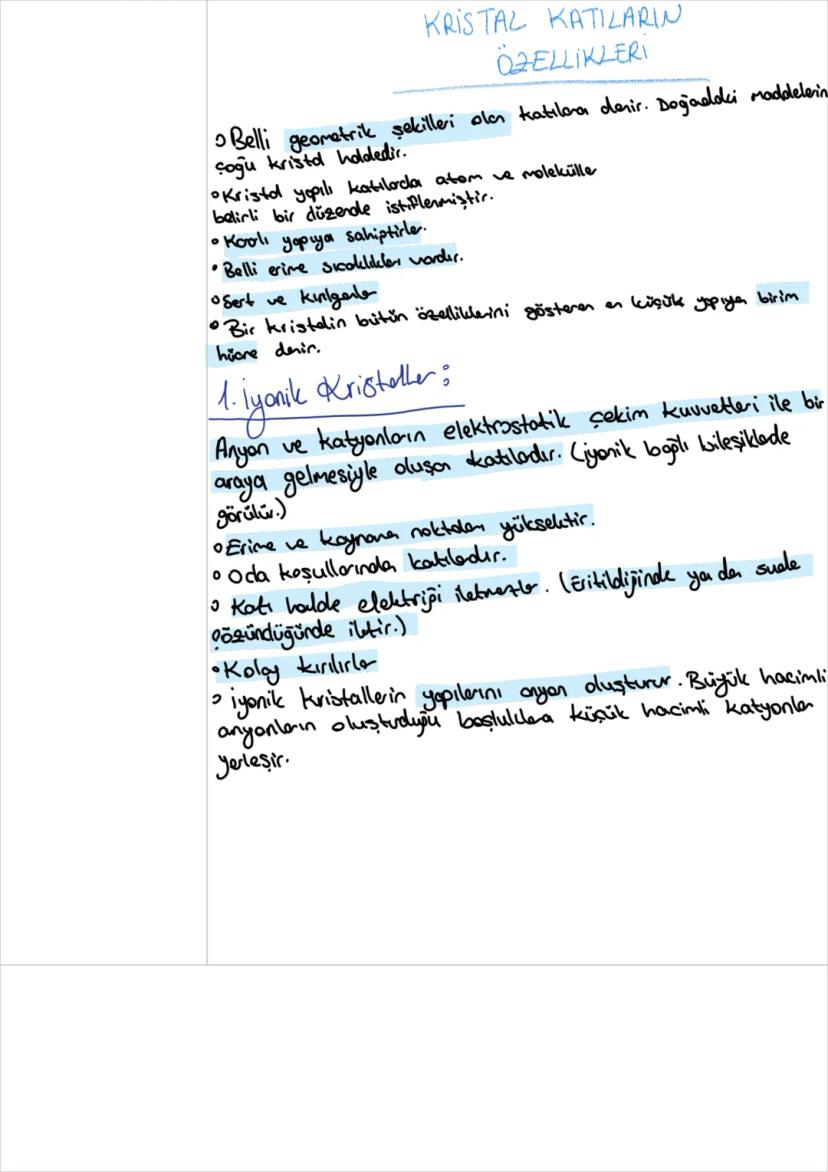 KRİSTAL KATILARIN
ÖZELLİKLERİ
Belli geometrik şekilleri olan katılara denir. Doğadaki maddelerin
çoğu kristal haldedir.
Kristal yapılı katılarda atom ve moleküller
belirli bir düzende istiflenmiştir.
Koolı yapıya sahiptirler.
Belli erime sıcaklıkları vardır.
Sert ve kırılganlar
Bir kristalin bütün özelliklerini gösteren en küçük yapıya birim
hücre denir.
1. İyonik Kristaller:
Anyon ve katyonların elektrostatik çekim kuvvetleri ile bir
araya gelmesiyle oluşan katılardır. (iyonik bağlı bileşiklerde
görülür.)
Erime ve kaynama noktaları yüksektir.
Oda koşullarında katılardır.
Katı halde elektriği iletmezler. (Eritildiğinde ya da suda
çözündüğünde iletir.)
Kolay kırılırlar
İyonik kristallerin yapılarını anyon oluşturur. Büyük hacimli
anyonların oluşturduğu boşluklara küçük hacimli katyonlar
yerleşir.